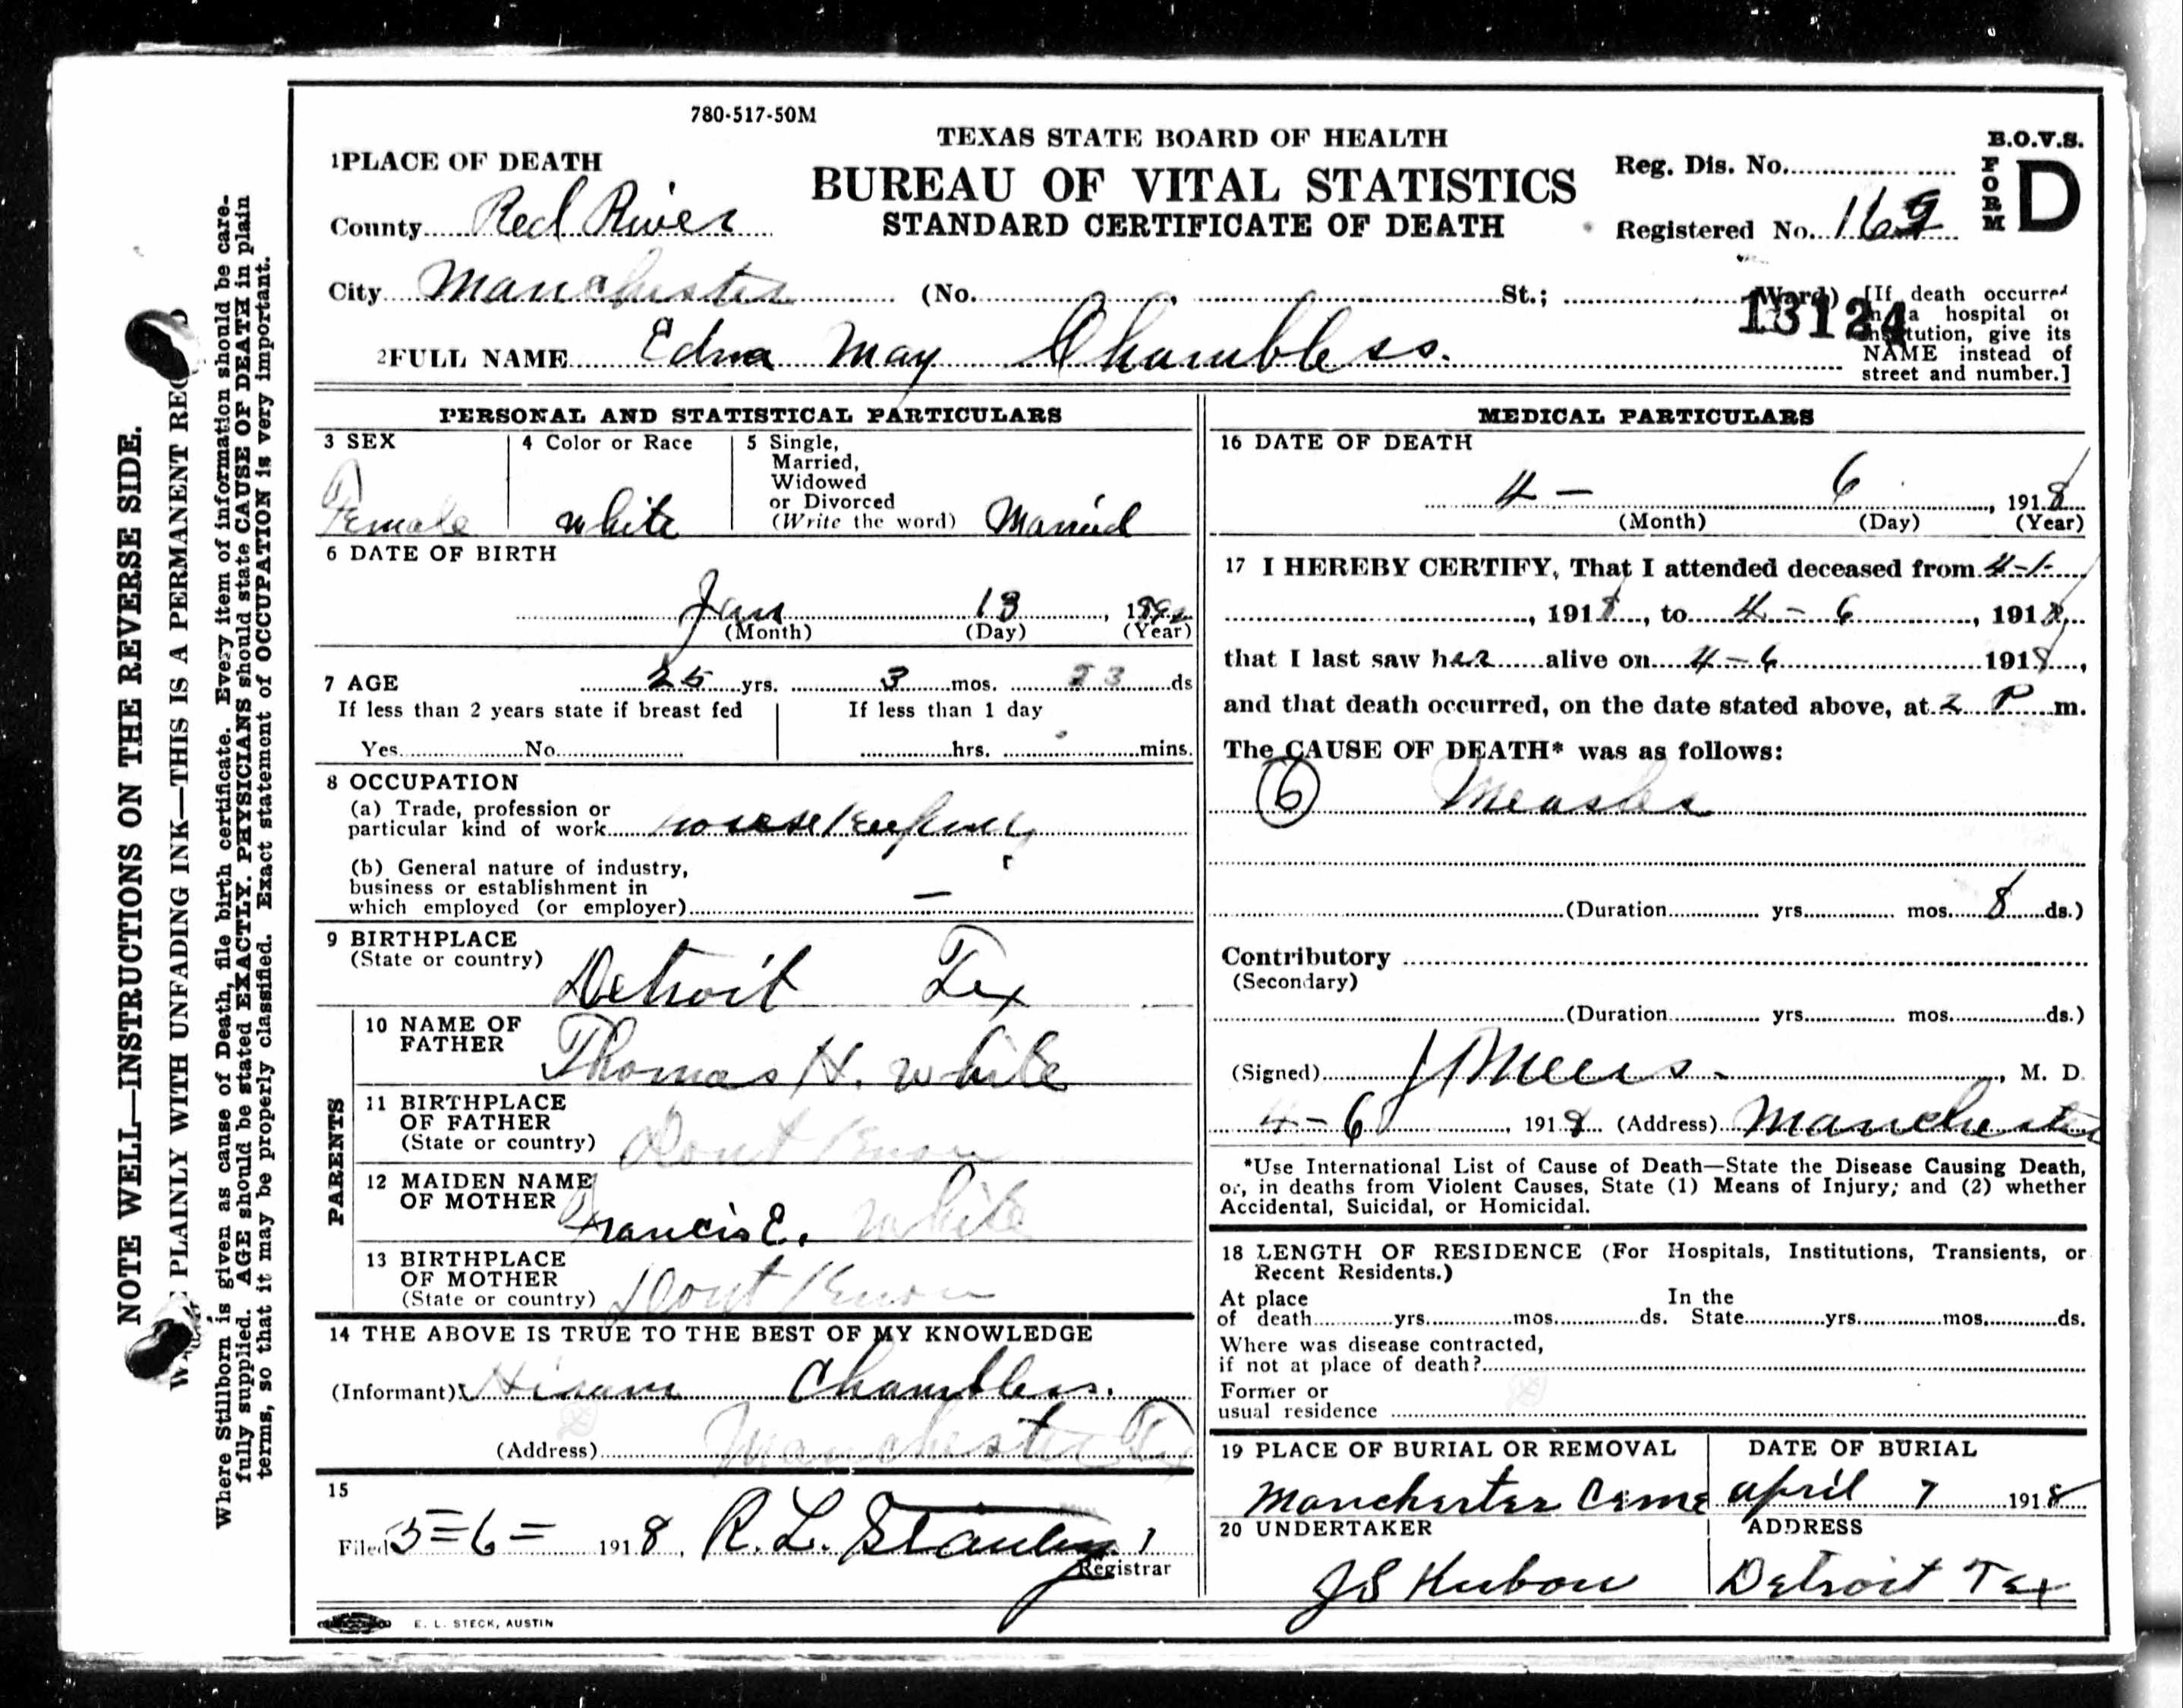 780-517-50M
TEXAS STATE BOARD OF HEALTH
BUREAU OF VITAL STATISTICS
STANDARD CERTIFICATE OF DEATH
B.O.V.S.
FORM D
Reg. Dis. No.
Registered No. 169
1 PLACE OF DEATH
County Red River
City Manchester (No. , St.; Ward)
13124
[If death occurred
in a hospital or
institution, give its
NAME instead of
street and number.]
2 FULL NAME Edna May Chambless.
PERSONAL AND STATISTICAL PARTICULARS
3 SEX
Female
4 Color or Race
white
5 Single,
Married,
Widowed
or Divorced
(Write the word) Married
6 DATE OF BIRTH
Jan 13, 1892
(Month) (Day) (Year)
7 AGE 25 yrs. 3 mos. 23 ds
If less than 2 years state if breast fed
Yes No
If less than 1 day
hrs. mins.
8 OCCUPATION
(a) Trade, profession or
particular kind of work housekeeping
(b) General nature of industry,
business or establishment in
which employed (or employer) —
9 BIRTHPLACE
(State or country) Detroit Tex
PARENTS
10 NAME OF
FATHER Thomas H. White
11 BIRTHPLACE
OF FATHER
(State or country) Dont Know
12 MAIDEN NAME
OF MOTHER Francis E. White
13 BIRTHPLACE
OF MOTHER
(State or country) Dont Know
14 THE ABOVE IS TRUE TO THE BEST OF MY KNOWLEDGE
(Informant) Hiram Chambless.
(Address) Manchester Tx
15
Filed 5=6= 1918, R. L. Stanley
Registrar
E. L. STECK, AUSTIN
MEDICAL PARTICULARS
16 DATE OF DEATH
4 – 6, 1918
(Month) (Day) (Year)
17 I HEREBY CERTIFY, That I attended deceased from 4-1-
, 1918, to 4 – 6, 1918,
that I last saw her alive on 4–6 1918,
and that death occurred, on the date stated above, at 2 P m.
The CAUSE OF DEATH* was as follows:
6 Measles
(Duration yrs. mos. 8 ds.)
Contributory
(Secondary)
(Duration yrs. mos. ds.)
(Signed) M. D.
4-6, 1918 (Address) Manchester
*Use International List of Cause of Death—State the Disease Causing Death,
or, in deaths from Violent Causes, State (1) Means of Injury; and (2) whether
Accidental, Suicidal, or Homicidal.
18 LENGTH OF RESIDENCE (For Hospitals, Institutions, Transients, or
Recent Residents.)
At place In the
of death yrs. mos. ds. State yrs. mos. ds.
Where was disease contracted,
if not at place of death?
Former or
usual residence
19 PLACE OF BURIAL OR REMOVAL
Manchester Ceme
DATE OF BURIAL
april 7 1918
20 UNDERTAKER
ADDRESS
Detroit Tex
NOTE WELL—INSTRUCTIONS ON THE REVERSE SIDE.
PLAINLY WITH UNFADING INK—THIS IS A PERMANENT
Where Stillborn is given as cause of Death, file birth certificate. Every item of information should be care-
fully supplied. AGE should be stated EXACTLY. PHYSICIANS should state CAUSE OF DEATH in plain
terms, so that it may be properly classified. Exact statement of OCCUPATION is very important.